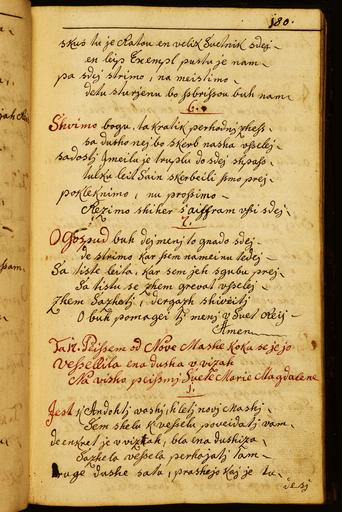 180.
skus tu je Ratou en velik Suetnik sdej
en leip Exempl pustu je nam
pa sdej strimo, na meistimo
detu sturjenu bo sbrissou buh nam
6.
Shvimo bogu, ta kratik perhodnj zhess
sa dusho nej bo skerb nasha vsselej
sadosti smeilu je truplu do sdej shpass
tulku leit Sain skerbeili smo prej
pokleknimo, nu prossimo
Rezimo shiher saiffram vssi sdej
7.
O Gospud buh dej menj to gnado sdej
de strimo kar ssem nameinu tedej
Sa tiste leita, kar sem jeh sgubu prej
Sa tistu se zhem grevat vsselej
Zhem Sazhetj, dergazh shiveitj
O buh pomagei tj menj v Suet Reij
Amen
Ta 12. Peissem od Nove Mashe koku se je jo
vessellila ena dusha v vizah
Na visho peissmj Suete Marie Magdalene
1.
Jest s' Andohtj vashj, k' letj novj Mashj
Sem shelu k' vesselu poveidatj vam
de enkrat je v vizah, bla ena dushiza
Sazhela vessela perhajatj tam
druge dushe sata, prashejo kaj je tu
de sj